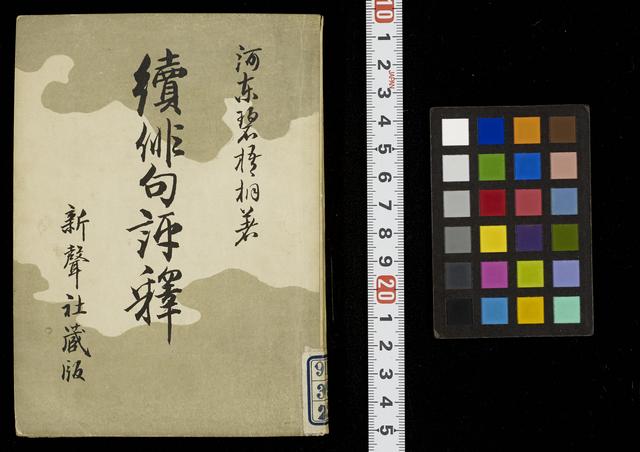 河东碧梧桐著
續俳句評釋
新聲社藏版
9
3
2
10
1
2
JAPAN
3
4
5
6
7
8
9
20
1
2
3
4
5